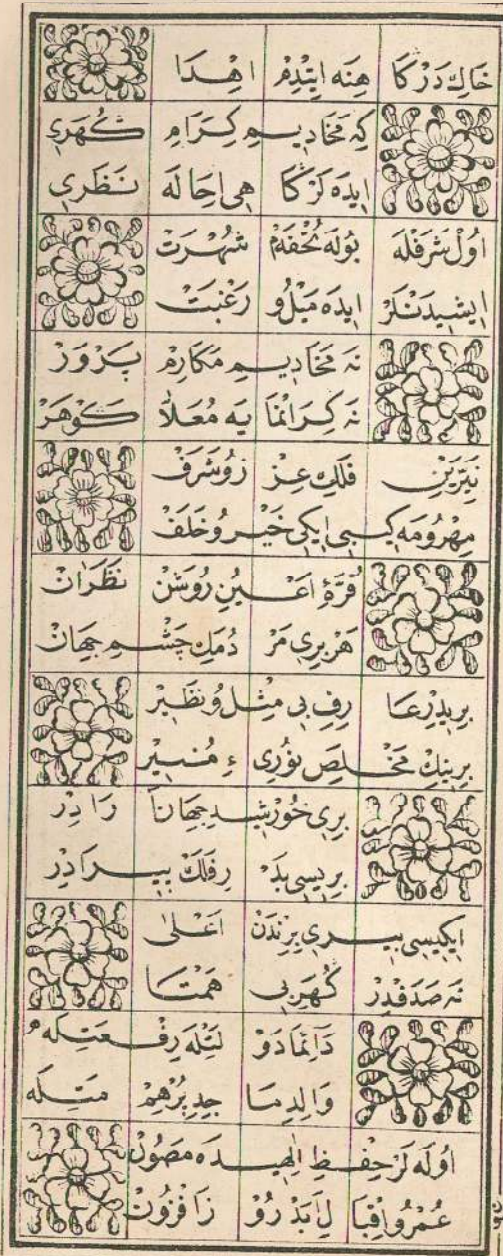 خاك دركا هنه ايتدم اهدا
كه مخاديم كرام كهرى
ايده لركا هى احاله نظرى
اول شرفله بوله تحفه م شهرت
ايشيدنلر ايده ميل و رغبت
نه مخاديم مكارم پرور
نه كرانما يه معلا كوهر
نيرين فلك عز زو شرف
مهر و مه كبى ايكى خير و خلف
قرۀ اعين روشن نظران
هر برى مر دمك چشم جهان
بريدر عا رف بى مثل و نظير
برينك مخلص نورى ء منير
برى خورشيد جهان آ رادر
بريسى بد ر فلك پيرادر
ايكيسى بيرى برندن اعلى
نه صدفدر كهر بى همتا
دائما دو لتله رفعتله
والد ما جد برهم متله
اوله لر حفظ الهيده مصون
عمر و اقبا ل ابد رو زافزون